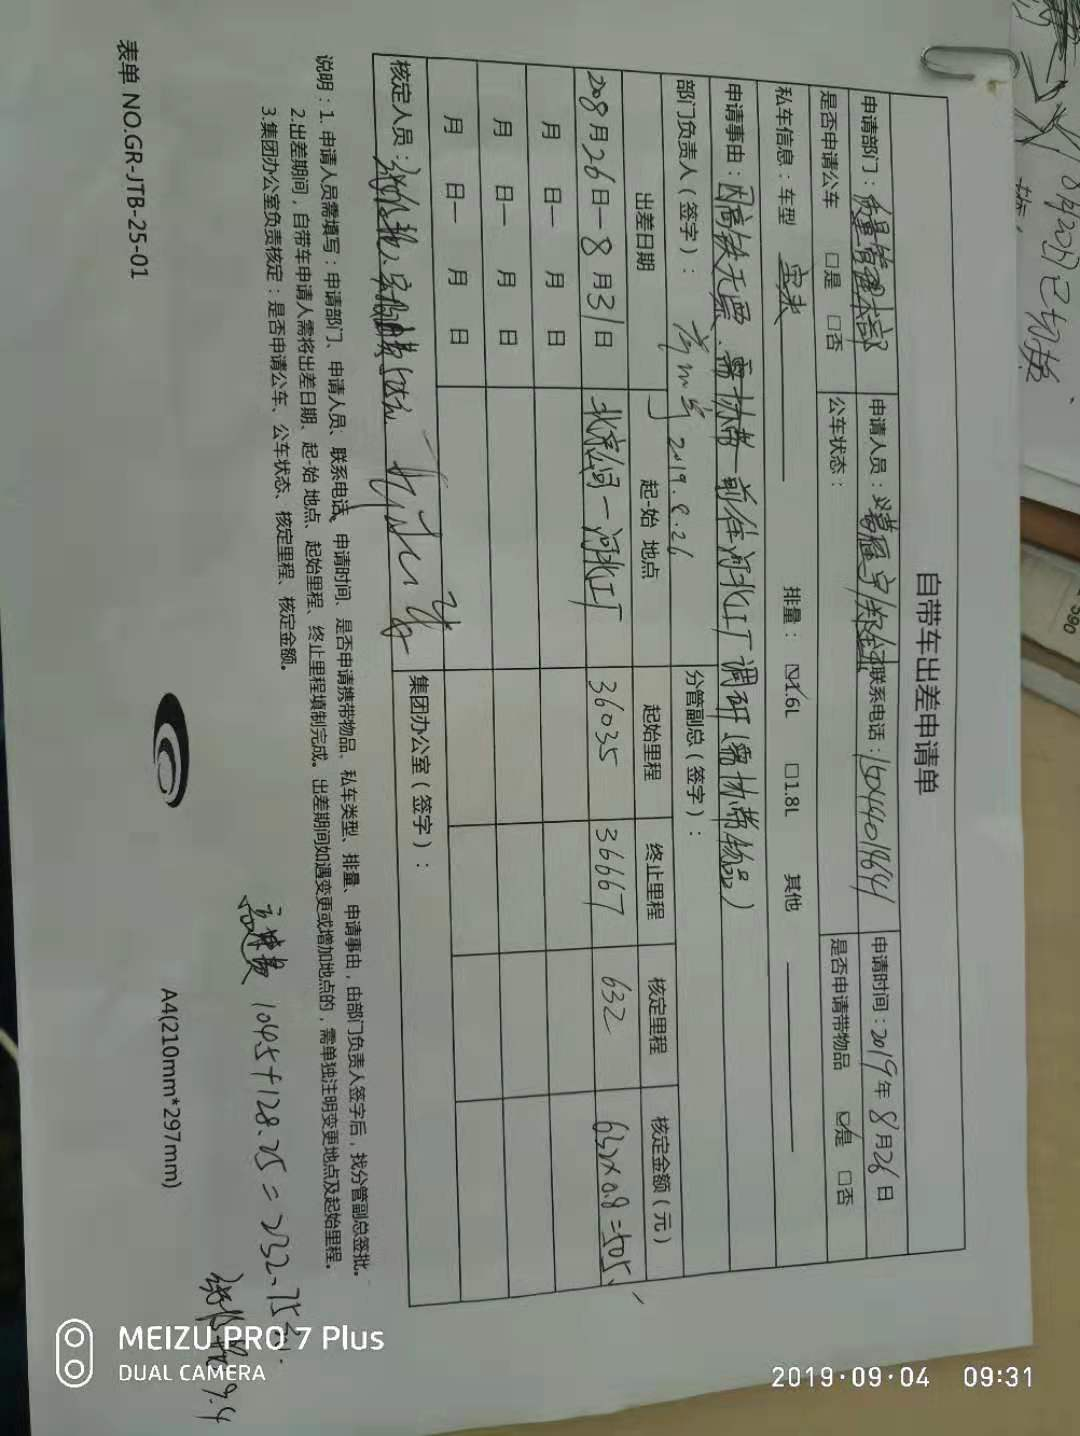 自带车出差申请单
申请部门：质量管理本部 申请人员： 联系电话：15044019641 申请时间：2019年8月26日
是否申请公车 □是 □否 公车状态： 是否申请带物品 ☑是 □否
私车信息：车型 宝来 排量：☑1.6L □1.8L 其他
申请事由：因高铁无票、需协带 前往河北工厂调研（需协带物品）
部门负责人（签字）： 2019.8.26 分管副总（签字）：
出差日期 起-始 地点 起始里程 终止里程 核定里程 核定金额（元）
8月26日一8月31日 北京公司一河北工厂 36035 36667 632 632×0.8=505.
月 日一 月 日
月 日一 月 日
月 日一 月 日
核定人员： 集团办公室（签字）：
说明：1. 申请人员需填写：申请部门、申请人员、联系电话、申请时间、是否申请携带物品、私车类型、排量、申请事由，由部门负责人签字后，找分管副总签批。
2.出差期间，自带车申请人需将出差日期、起-始 地点、起始里程、终止里程填制完成。出差期间如遇变更或增加地点的，需单独注明变更地点及起始里程。
3.集团办公室负责核定：是否申请公车、公车状态、核定里程、核定金额。
高速费 104.5+128.25=232.75元.
9.4
表单 NO.GR-JTB-25-01 A4(210mm*297mm)
MEIZU PRO 7 Plus
DUAL CAMERA
2019·09·04 09:31